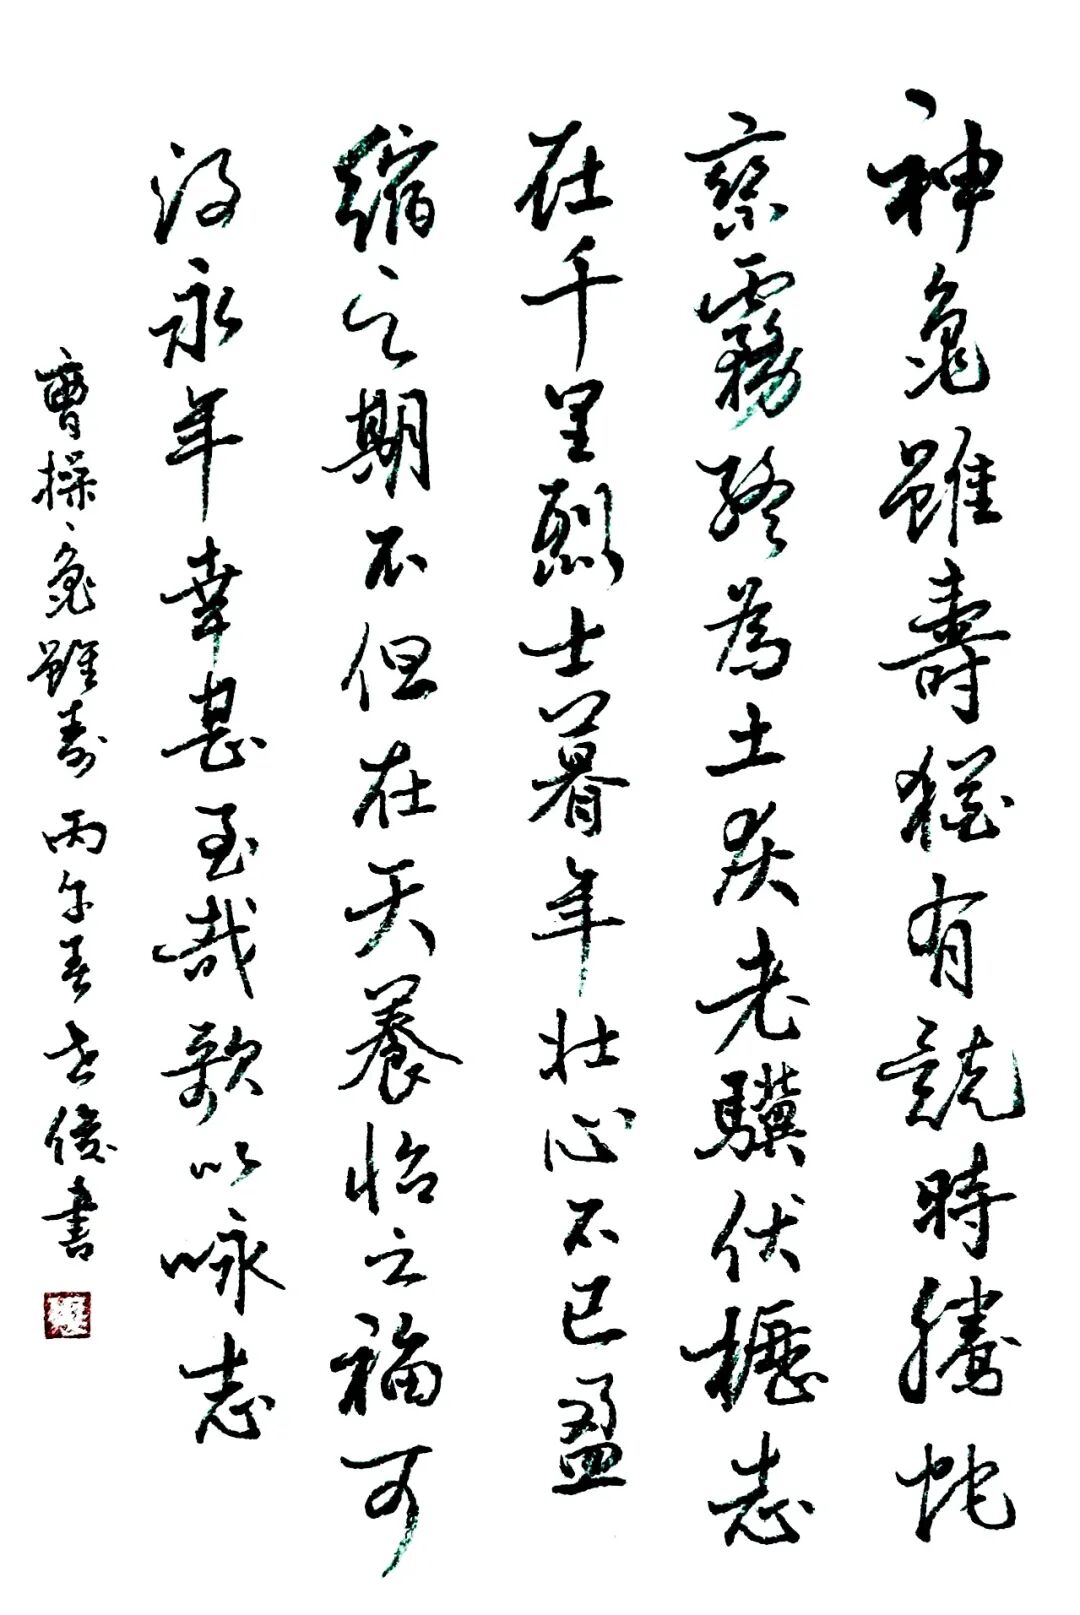 神龜雖壽猶有竞時騰蛇
乘霧終為土灰老驥伏櫪志
在千里烈士暮年壯心不已盈
縮之期不但在天養怡之福可
得永年幸甚至哉歌以咏志
曹操、龜雖壽 丙午春 俊書